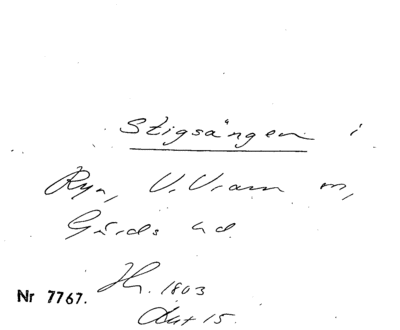 Stigsängen i
Ryr, V. Vram m,
Gärds hd.
Nr 7767. Hr. 1803
Lut 15.